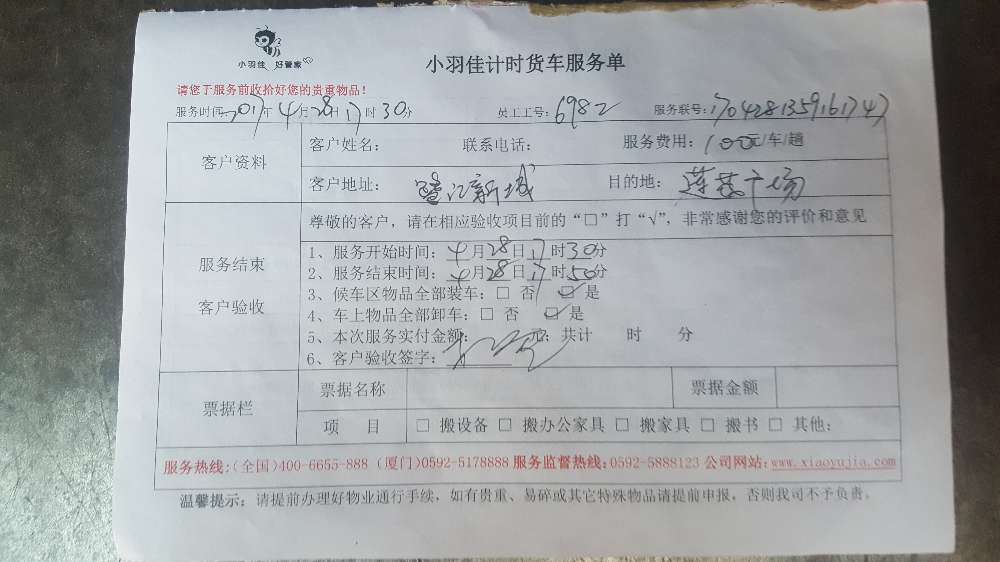 小羽佳 好管家
小羽佳计时货车服务单
请您于服务前收拾好您的贵重物品！
服务时间2017年4月28日17时30分 员工工号：6982 服务联号：1704281359161747
客户资料
客户姓名： 联系电话： 服务费用：100元/车/趟
客户地址：鹭江新城 目的地：莲花广场
服务结束
客户验收
尊敬的客户，请在相应验收项目前的“□”打“√”，非常感谢您的评价和意见
1、服务开始时间：4月28日17时30分
2、服务结束时间：4月28日17时50分
3、候车区物品全部装车：□ 否 ☑ 是
4、车上物品全部卸车：□ 否 ☑ 是
5、本次服务实付金额： 元；共计 时 分
6、客户验收签字：
票据栏
票据名称 票据金额
项 目 □ 搬设备 □ 搬办公家具 □ 搬家具 □ 搬书 □ 其他：
服务热线：（全国）400-6655-888（厦门）0592-5178888 服务监督热线：0592-5888123 公司网站：www.xiaoyujia.com
温馨提示：请提前办理好物业通行手续，如有贵重、易碎或其它特殊物品请提前申报，否则我司不予负责。